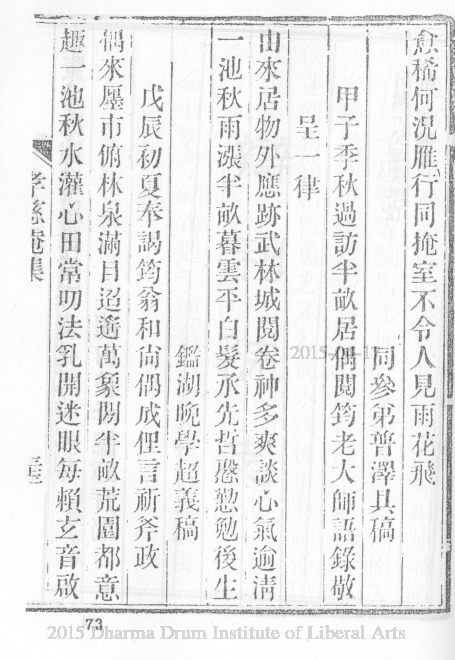 愈稀何況雁行同掩室不令人見雨花飛
同參弟普澤具稿
甲子季秋過訪半畝居偶閱筠老大師語錄敬
呈一律
由來居物外應跡武林城閱卷神多爽談心氣逾清
一池秋雨漲半畝暮雲平白髮承先哲慇懃勉後生
鑑湖晚學超義稿
戊辰初夏奉謁筠翁和尚偶成俚言祈斧政
偶來廛市俯林泉滿目迢遙萬象閒半畝荒園都意
趣一池秋水灌心田常叨法乳開迷眼每賴玄音啟
孝慈菴集
73
2015 Dharma Drum Institute of Liberal Arts